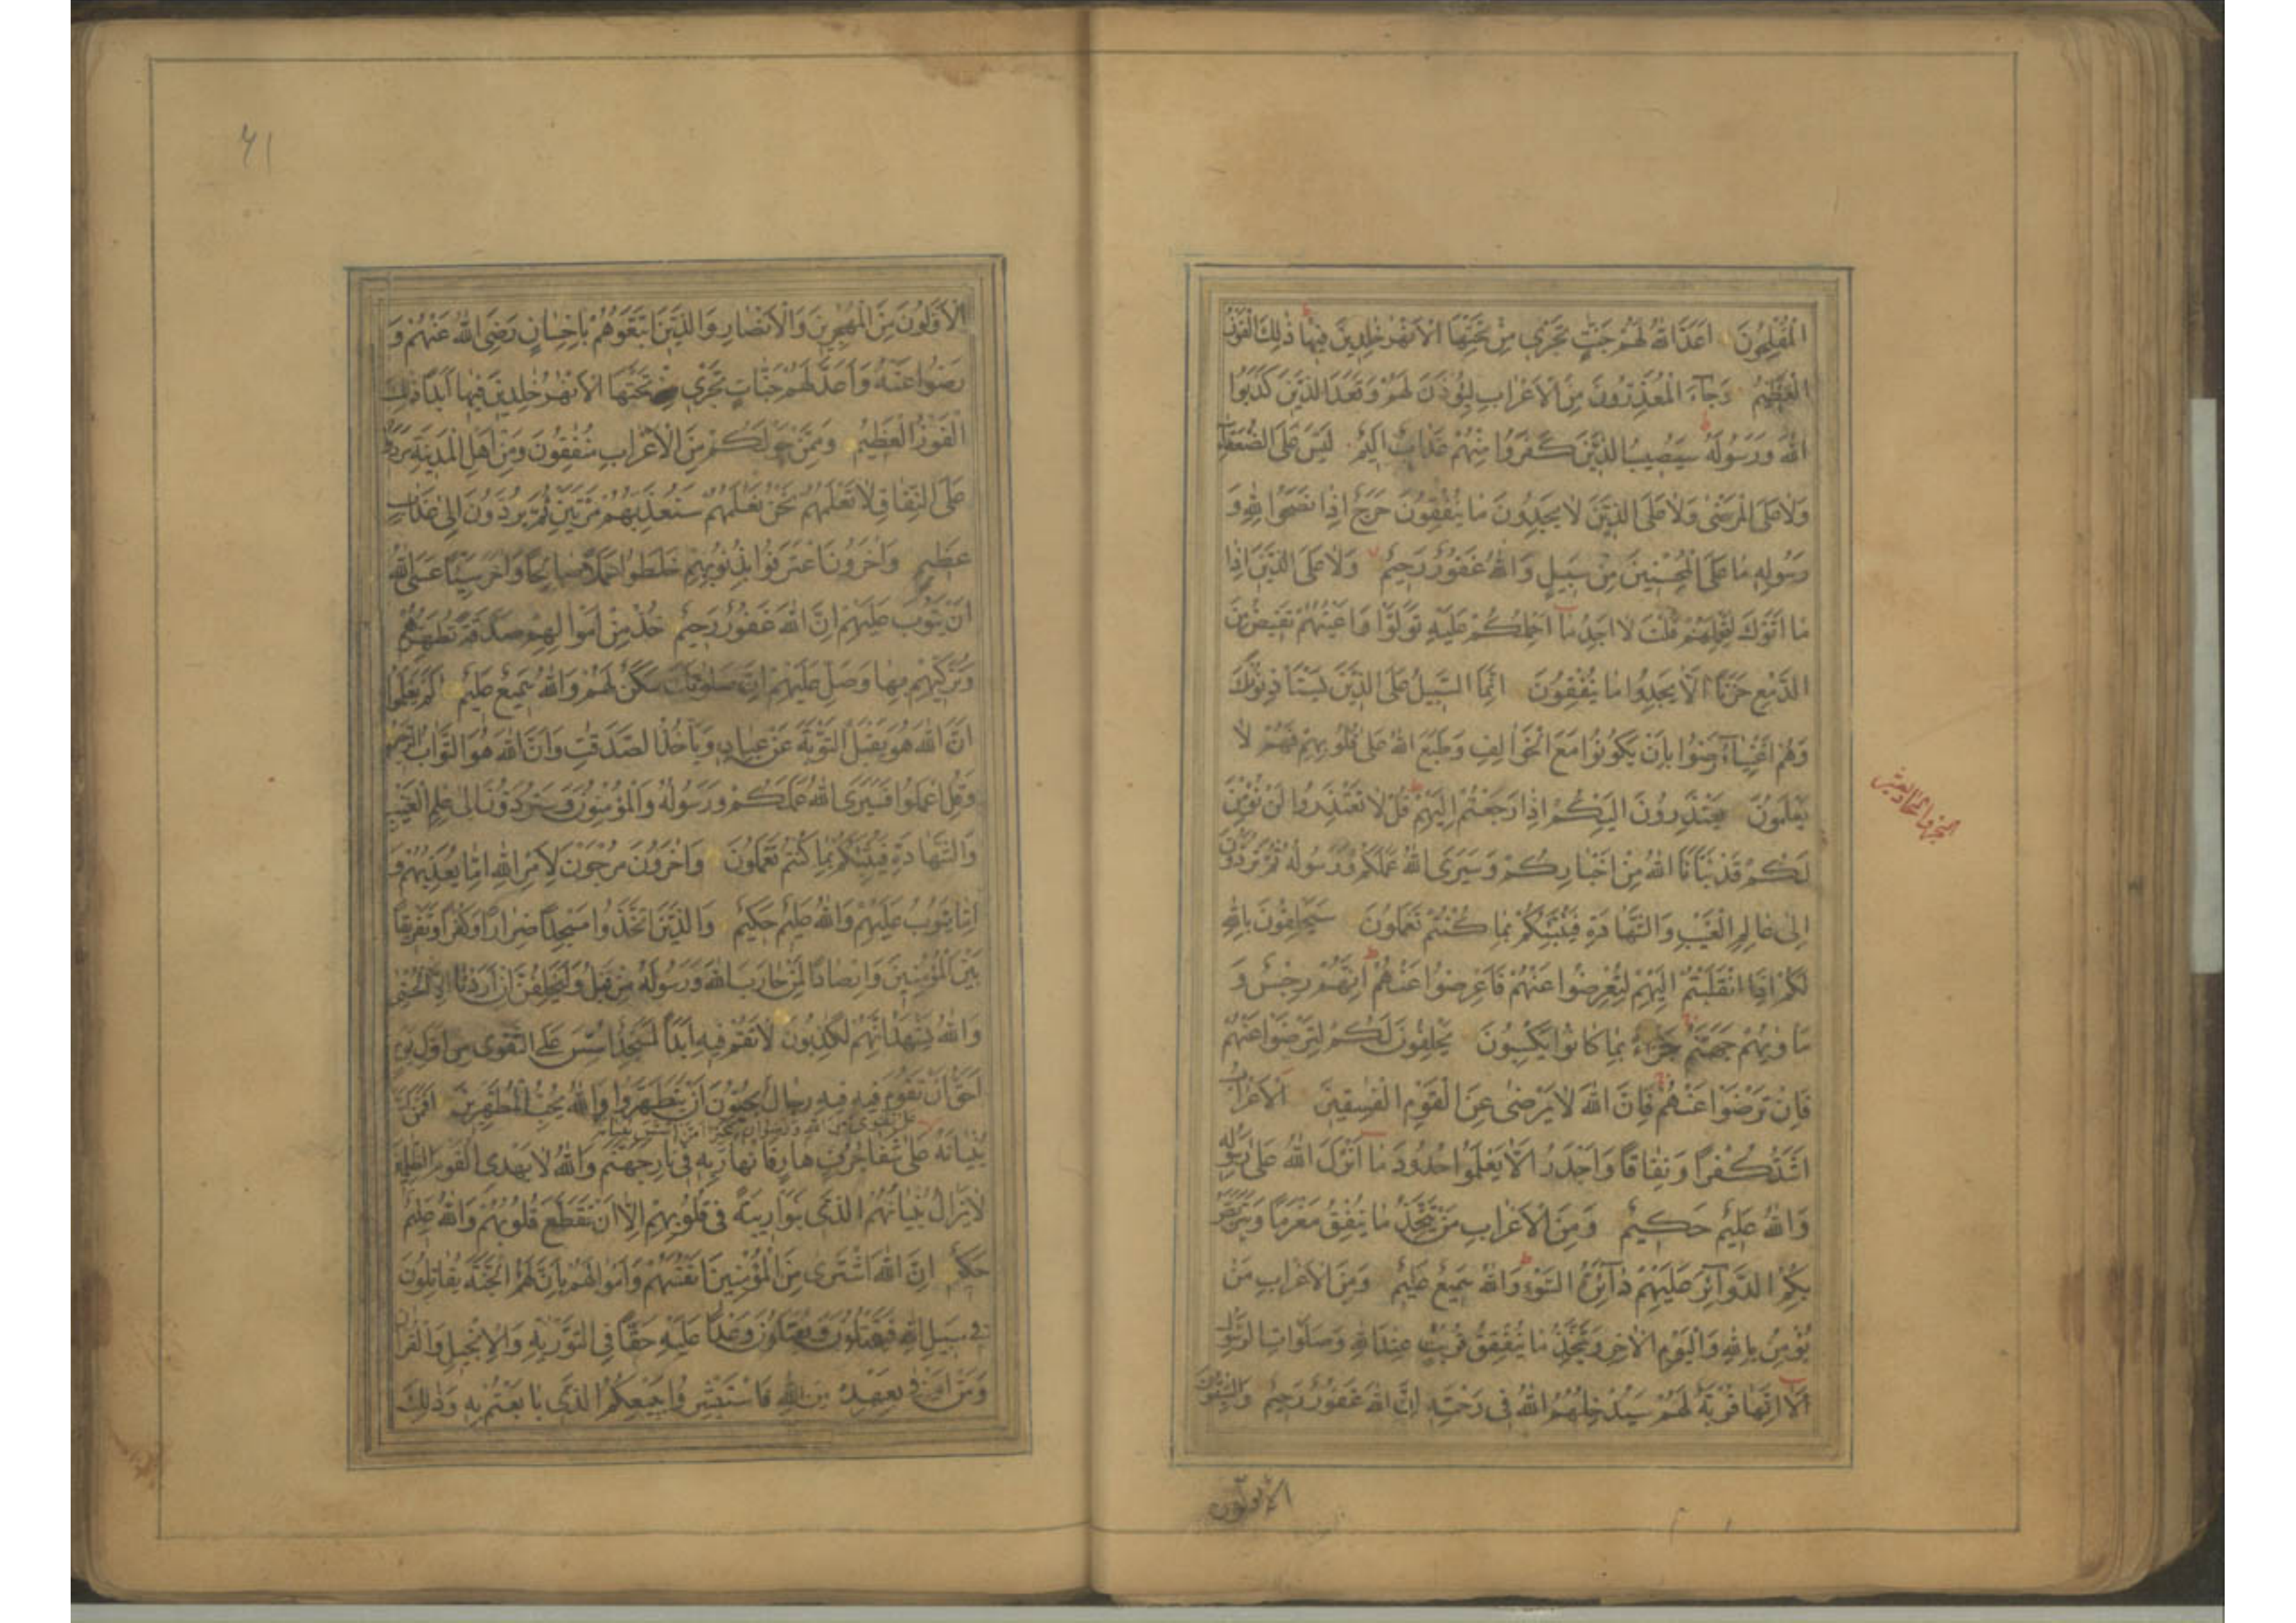 الْمُفْلِحُونَ اَعَدَّ اللّٰهُ لَهُمْ جَنّٰتٍ تَجْرٖى مِنْ تَحْتِهَا الْاَنْهٰرُ خٰلِدٖينَ فٖيهَا ذٰلِكَ الْفَوْزُ
الْعَظٖيمُ وَجَآءَ الْمُعَذِّرُونَ مِنَ الْاَعْرَابِ لِيُؤْذَنَ لَهُمْ وَقَعَدَ الَّذٖينَ كَذَبُوا
اللّٰهَ وَرَسُولَهُ سَيُصٖيبُ الَّذٖينَ كَفَرُوا مِنْهُمْ عَذَابٌ اَلٖيمٌ لَيْسَ عَلَى الضُّعَفَآءِ
وَلَا عَلَى الْمَرْضٰى وَلَا عَلَى الَّذٖينَ لَا يَجِدُونَ مَا يُنْفِقُونَ حَرَجٌ اِذَا نَصَحُوا لِلّٰهِ وَ
رَسُولِهٖ مَا عَلَى الْمُحْسِنٖينَ مِنْ سَبٖيلٍ وَاللّٰهُ غَفُورٌ رَحٖيمٌ وَلَا عَلَى الَّذٖينَ اِذَا
مَا اَتَوْكَ لِتَحْمِلَهُمْ قُلْتَ لَا اَجِدُ مَا اَحْمِلُكُمْ عَلَيْهِ تَوَلَّوْا وَاَعْيُنُهُمْ تَفٖيضُ مِنَ
الدَّمْعِ حَزَنًا اَلَّا يَجِدُوا مَا يُنْفِقُونَ اِنَّمَا السَّبٖيلُ عَلَى الَّذٖينَ يَسْتَاْذِنُونَكَ
وَهُمْ اَغْنِيَآءُ رَضُوا بِاَنْ يَكُونُوا مَعَ الْخَوَالِفِ وَطَبَعَ اللّٰهُ عَلٰى قُلُوبِهِمْ فَهُمْ لَا
يَعْلَمُونَ يَعْتَذِرُونَ اِلَيْكُمْ اِذَا رَجَعْتُمْ اِلَيْهِمْ قُلْ لَا تَعْتَذِرُوا لَنْ نُؤْمِنَ
لَكُمْ قَدْ نَبَّاَنَا اللّٰهُ مِنْ اَخْبَارِكُمْ وَسَيَرَى اللّٰهُ عَمَلَكُمْ وَرَسُولُهُ ثُمَّ تُرَدُّونَ
اِلٰى عَالِمِ الْغَيْبِ وَالشَّهَادَةِ فَيُنَبِّئُكُمْ بِمَا كُنْتُمْ تَعْمَلُونَ سَيَحْلِفُونَ بِاللّٰهِ
لَكُمْ اِذَا انْقَلَبْتُمْ اِلَيْهِمْ لِتُعْرِضُوا عَنْهُمْ فَاَعْرِضُوا عَنْهُمْ اِنَّهُمْ رِجْسٌ وَ
مَاْوٰيهُمْ جَهَنَّمُ جَزَآءً بِمَا كَانُوا يَكْسِبُونَ يَحْلِفُونَ لَكُمْ لِتَرْضَوْا عَنْهُمْ
فَاِنْ تَرْضَوْا عَنْهُمْ فَاِنَّ اللّٰهَ لَا يَرْضٰى عَنِ الْقَوْمِ الْفٰسِقٖينَ اَلْاَعْرَابُ
اَشَدُّ كُفْرًا وَنِفَاقًا وَاَجْدَرُ اَلَّا يَعْلَمُوا حُدُودَ مَا اَنْزَلَ اللّٰهُ عَلٰى رَسُولِهٖ
وَاللّٰهُ عَلٖيمٌ حَكٖيمٌ وَمِنَ الْاَعْرَابِ مَنْ يَتَّخِذُ مَا يُنْفِقُ مَغْرَمًا وَيَتَرَبَّصُ
بِكُمُ الدَّوَآئِرَ عَلَيْهِمْ دَآئِرَةُ السَّوْءِ وَاللّٰهُ سَمٖيعٌ عَلٖيمٌ وَمِنَ الْاَعْرَابِ مَنْ
يُؤْمِنُ بِاللّٰهِ وَالْيَوْمِ الْاٰخِرِ وَيَتَّخِذُ مَا يُنْفِقُ قُرُبٰتٍ عِنْدَ اللّٰهِ وَصَلَوَاتِ الرَّسُولِ
اَلَا اِنَّهَا قُرْبَةٌ لَهُمْ سَيُدْخِلُهُمُ اللّٰهُ فٖى رَحْمَتِهٖ اِنَّ اللّٰهَ غَفُورٌ رَحٖيمٌ وَالسّٰبِقُونَ
الاولون
٤١
الْاَوَّلُونَ مِنَ الْمُهٰجِرٖينَ وَالْاَنْصَارِ وَالَّذٖينَ اتَّبَعُوهُمْ بِاِحْسَانٍ رَضِىَ اللّٰهُ عَنْهُمْ وَ
رَضُوا عَنْهُ وَاَعَدَّ لَهُمْ جَنَّاتٍ تَجْرٖى تَحْتَهَا الْاَنْهٰرُ خٰلِدٖينَ فٖيهَا اَبَدًا ذٰلِكَ
الْفَوْزُ الْعَظٖيمُ وَمِمَّنْ حَوْلَكُمْ مِنَ الْاَعْرَابِ مُنٰفِقُونَ وَمِنْ اَهْلِ الْمَدٖينَةِ مَرَدُوا
عَلَى النِّفَاقِ لَا تَعْلَمُهُمْ نَحْنُ نَعْلَمُهُمْ سَنُعَذِّبُهُمْ مَرَّتَيْنِ ثُمَّ يُرَدُّونَ اِلٰى عَذَابٍ
عَظٖيمٍ وَاٰخَرُونَ اعْتَرَفُوا بِذُنُوبِهِمْ خَلَطُوا عَمَلًا صَالِحًا وَاٰخَرَ سَيِّئًا عَسَى اللّٰهُ
اَنْ يَتُوبَ عَلَيْهِمْ اِنَّ اللّٰهَ غَفُورٌ رَحٖيمٌ خُذْ مِنْ اَمْوَالِهِمْ صَدَقَةً تُطَهِّرُهُمْ
وَتُزَكّٖيهِمْ بِهَا وَصَلِّ عَلَيْهِمْ اِنَّ صَلٰوتَكَ سَكَنٌ لَهُمْ وَاللّٰهُ سَمٖيعٌ عَلٖيمٌ اَلَمْ يَعْلَمُوا
اَنَّ اللّٰهَ هُوَ يَقْبَلُ التَّوْبَةَ عَنْ عِبَادِهٖ وَيَاْخُذُ الصَّدَقٰتِ وَاَنَّ اللّٰهَ هُوَ التَّوَّابُ الرَّحٖيمُ
وَقُلِ اعْمَلُوا فَسَيَرَى اللّٰهُ عَمَلَكُمْ وَرَسُولُهُ وَالْمُؤْمِنُونَ وَسَتُرَدُّونَ اِلٰى عٰلِمِ الْغَيْبِ
وَالشَّهَادَةِ فَيُنَبِّئُكُمْ بِمَا كُنْتُمْ تَعْمَلُونَ وَاٰخَرُونَ مُرْجَوْنَ لِاَمْرِ اللّٰهِ اِمَّا يُعَذِّبُهُمْ وَ
اِمَّا يَتُوبُ عَلَيْهِمْ وَاللّٰهُ عَلٖيمٌ حَكٖيمٌ وَالَّذٖينَ اتَّخَذُوا مَسْجِدًا ضِرَارًا وَكُفْرًا وَتَفْرٖيقًا
بَيْنَ الْمُؤْمِنٖينَ وَاِرْصَادًا لِمَنْ حَارَبَ اللّٰهَ وَرَسُولَهُ مِنْ قَبْلُ وَلَيَحْلِفُنَّ اِنْ اَرَدْنَا اِلَّا الْحُسْنٰى
وَاللّٰهُ يَشْهَدُ اِنَّهُمْ لَكٰذِبُونَ لَا تَقُمْ فٖيهِ اَبَدًا لَمَسْجِدٌ اُسِّسَ عَلَى التَّقْوٰى مِنْ اَوَّلِ يَوْمٍ
اَحَقُّ اَنْ تَقُومَ فٖيهِ فٖيهِ رِجَالٌ يُحِبُّونَ اَنْ يَتَطَهَّرُوا وَاللّٰهُ يُحِبُّ الْمُطَّهِّرٖينَ اَفَمَنْ اَسَّسَ
على تقوى من الله ورضوان خير ام من اسس بنيانه
بُنْيَانَهُ عَلٰى شَفَا جُرُفٍ هَارٍ فَانْهَارَ بِهٖ فٖى نَارِ جَهَنَّمَ وَاللّٰهُ لَا يَهْدِى الْقَوْمَ الظّٰلِمٖينَ
لَا يَزَالُ بُنْيَانُهُمُ الَّذٖى بَنَوْا رٖيبَةً فٖى قُلُوبِهِمْ اِلَّا اَنْ تَقَطَّعَ قُلُوبُهُمْ وَاللّٰهُ عَلٖيمٌ
حَكٖيمٌ اِنَّ اللّٰهَ اشْتَرٰى مِنَ الْمُؤْمِنٖينَ اَنْفُسَهُمْ وَاَمْوَالَهُمْ بِاَنَّ لَهُمُ الْجَنَّةَ يُقَاتِلُونَ
فٖى سَبٖيلِ اللّٰهِ فَيَقْتُلُونَ وَيُقْتَلُونَ وَعْدًا عَلَيْهِ حَقًّا فِى التَّوْرٰيةِ وَالْاِنْجٖيلِ وَالْقُرْاٰنِ
وَمَنْ اَوْفٰى بِعَهْدِهٖ مِنَ اللّٰهِ فَاسْتَبْشِرُوا بِبَيْعِكُمُ الَّذٖى بَايَعْتُمْ بِهٖ وَذٰلِكَ